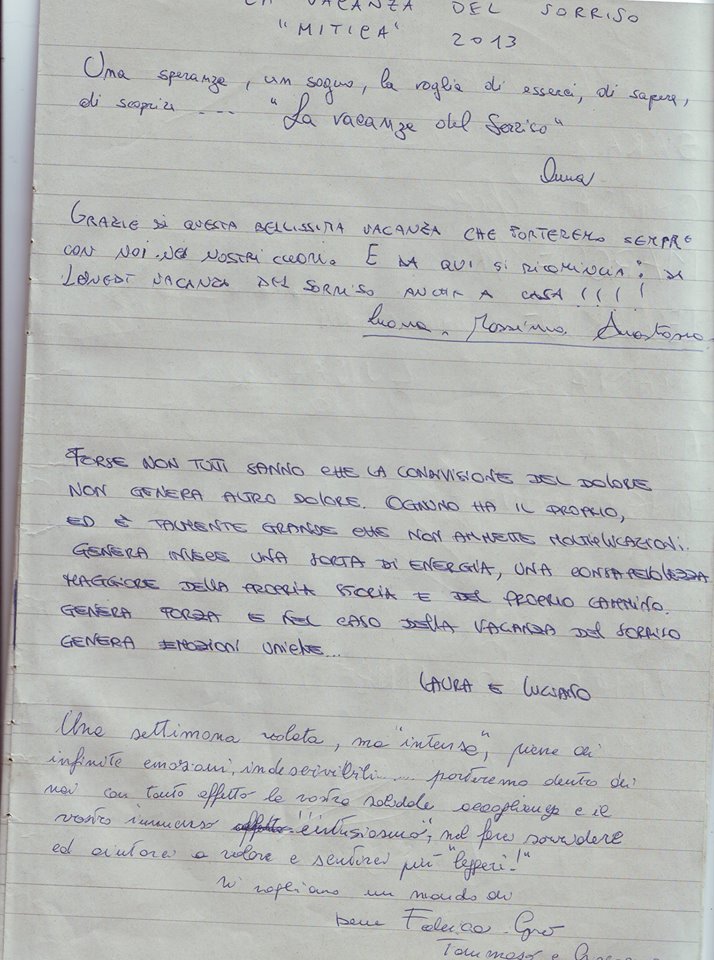 LA VACANZA DEL SORRISO
"MITICA" 2013
Una speranza, un sogno, la voglia di esserci, di sapere,
di scoprire .... "La vacanza del Sorriso"
Anna
GRAZIE DI QUESTA BELLISSIMA VACANZA CHE PORTEREMO SEMPRE
CON NOI NEI NOSTRI CUORI. E DA QUI SI RICOMINCIA: DA
LUNEDÌ VACANZA DEL SORRISO ANCHE A CASA !!!!
Massimo
FORSE NON TUTTI SANNO CHE LA CONDIVISIONE DEL DOLORE
NON GENERA ALTRO DOLORE. OGNUNO HA IL PROPRIO,
ED È TALMENTE GRANDE CHE NON AMMETTE MOLTIPLICAZIONI.
GENERA INVECE UNA SORTA DI ENERGIA, UNA CONSAPEVOLEZZA
MAGGIORE DELLA PROPRIA STORIA E DEL PROPRIO CAMMINO.
GENERA FORZA E NEL CASO DELLA VACANZA DEL SORRISO
GENERA EMOZIONI UNICHE...
LAURA E LUCIANO
Una settimana volata, ma "intensa", piena di
infinite emozioni, indescrivibili..... porteremo dentro di
noi con tanto affetto la vostra solidale accoglienza e il
vostro immenso "entusiasmo", nel farci sorridere
ed aiutarci a volare e sentirci più "leggeri!"
Vi vogliamo un mondo di
bene Federica
Tommaso e